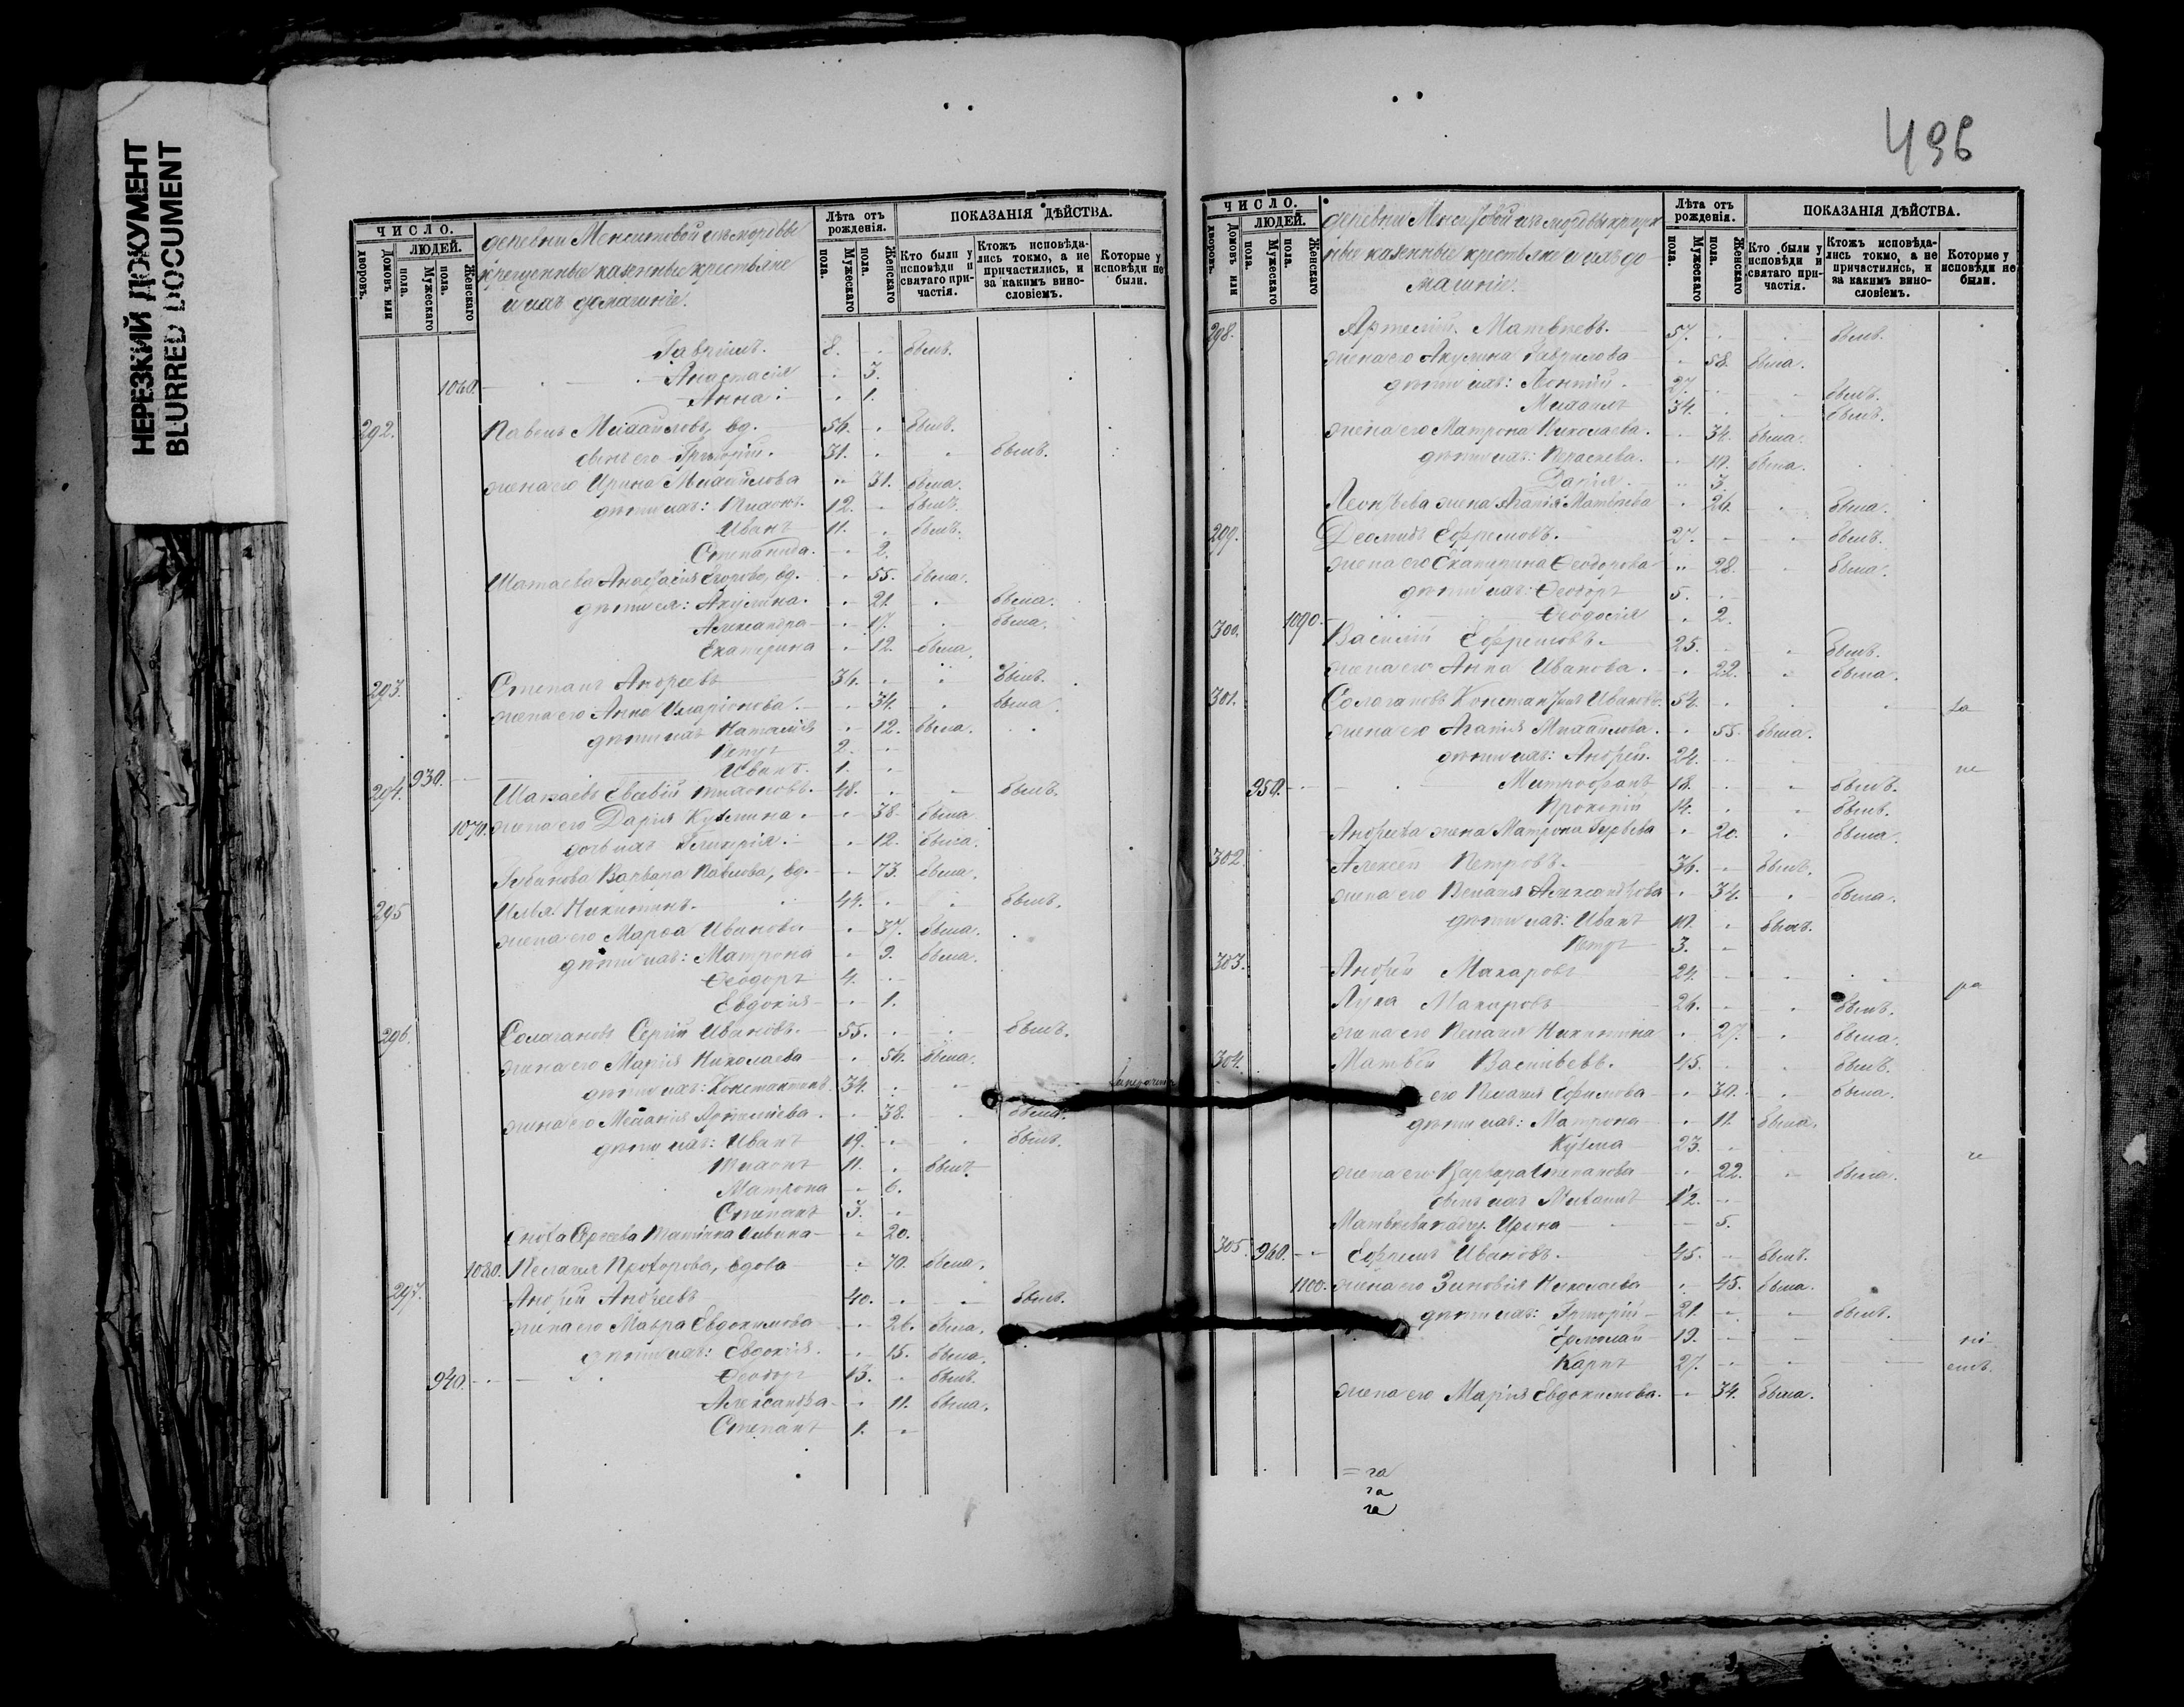 НЕРЕЗКИЙ ДОКУМЕНТ
BLURRED DOCUMENT
ЧИСЛО.
ЛЮДЕЙ.
Домовъ или дворовъ.
Мужескаго пола.
Женскаго пола.
деревни изъ мордвы
крещенные казенные крестьяне
и ихъ домашніе.
Лѣта отъ рожденія.
Мужескаго пола.
Женскаго пола.
ПОКАЗАНІЯ ДѢЙСТВА.
Кто были у исповѣди и святаго причастія.
Ктожъ исповѣдались токмо, а не причастились, и за какимъ винословіемъ.
Которые у исповѣди не были.
Гавріилъ. 8. былъ.
Анастасія 3.
1060. Анна 1.
292. Павелъ Михайловъ, вд. 56. былъ.
сынъ его Григорій. 31. былъ.
жена его Ирина Михайлова 31. была.
дѣти ихъ: Тихонъ. 12. былъ.
Иванъ 11. былъ.
Степанида. 2.
Шатаева Анастасія Егорова, вд. 55. была.
дѣти ея: Акулина. 21. была.
Александра 17. была.
Екатерина 12. была.
293. Степанъ Андреевъ 36. былъ.
жена его Анна Иларіонова. 34. была.
дѣти ихъ Наталія 12. была.
Петръ 2.
930. Иванъ. 1.
294. Шатаевъ Евсевій Тихоновъ. 48. былъ.
1070. жена его Дарія Кузмина. 38. была
дочь ихъ Гликерія. 12. была.
Варвара Павлова, вд. 73. была.
295 Илья Никитинъ. 44. былъ.
жена его Марѳа Иванова 37. была.
дѣти ихъ: Матрона 9. была.
Ѳеодоръ 4.
Евдокія 1.
296. Солагановъ Сергій Ивановъ. 55. былъ.
жена его Марія Николаева 56. была.
дѣти ихъ: Константинъ. 34.
жена его Меланія 38. была.
дѣти ихъ: Иванъ 19. былъ.
Тихонъ 11. былъ
Матрона 6.
Степанъ 3.
20.
1080. Пелагія Прохорова, вдова 70. была.
297. Андрей Андреевъ 40. былъ.
жена его Мавра Евдокимова 26. была.
дѣти ихъ: Евдокія. 15. была.
940. Ѳеодоръ 13. былъ.
Александра 11. была.
Степанъ 1.
496
ЧИСЛО.
ЛЮДЕЙ.
Домовъ или дворовъ.
Мужескаго пола.
Женскаго пола.
деревни изъ мордвы крещен
ные казенные крестьяне и ихъ до
машніе.
Лѣта отъ рожденія.
Мужескаго пола.
Женскаго пола.
ПОКАЗАНІЯ ДѢЙСТВА.
Кто были у исповѣди и святаго причастія.
Ктожъ исповѣдались токмо, а не причастились, и за какимъ винословіемъ.
Которые у исповѣди не были.
298. Матвѣевъ. 57. былъ.
жена его Акулина Гаврилова 58. была.
дѣти ихъ: Леонтій. 27. былъ.
Михаилъ 34. былъ.
жена его Матрона Николаева. 34. была.
дѣти ихъ: 10. была.
Дарія. 3.
жена Агапія Матвѣева 26. была.
299. Деомидъ Ефремовъ. 27. былъ.
жена его Екатерина Ѳеодорова 28. была.
дѣти ихъ: Ѳеодоръ 5.
1090. Ѳеодосія 2.
300. Василій Ефремовъ. 25. былъ.
жена его Анна Иванова. 22. была.
301. Солагановъ Константинъ Ивановъ. 54. за
жена его Агапія Михайлова. 55. была.
дѣти ихъ: Андрей. 24. не
950. Митрофанъ 18. былъ.
Прокопій 14. былъ.
Андреева жена Матрона Гурьева 20. была.
302. Алексей Петровъ. 36. былъ.
жена его Пелагія Александрова 34. была.
дѣти ихъ: Иванъ 10. былъ.
Петръ 3.
303. Андрей Макаровъ 24. ра
Лука Макаровъ 26. былъ.
жена его Пелагія Никитина 27. была.
304. Матвѣй Васильевъ. 45. былъ.
его Пелагія Ефимова 30. была.
дѣти ихъ: Матрона 11. была.
Кузма 23. че
жена его Варвара Степанова 22. была.
сынъ ихъ Михаилъ 1/2.
Матвѣева Ирина 5.
305. 960. Ефремъ Ивановъ. 45. былъ.
1100. жена его Зиновія Николаева 45. была.
дѣти ихъ: Григорій 21. былъ.
Ермолай 19. ні
Карпъ 27. емъ.
жена его Марія Евдокимова. 34. была.